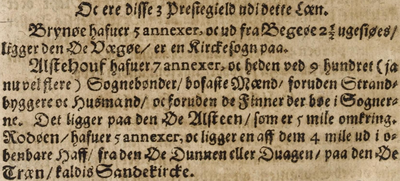 Oc ere disse 3 Prestegield udi dette Læn.
Brynøe hafuer 5 annexer, oc ud fra Begeøe 2½ ugesiøes/
ligger den Øe Vægøe/ er en Kirckesogn paa.
Alstehouf hafuer 7 annexer, oc heden ved 9 hundret (ja
nu vel flere) Sognebønder/ bofaste Mænd/ foruden Strand-
byggere oc Husmænd/ oc foruden de Finner der boe i Sogner-
ne. Det ligger paa den Øe Alsteen/ som er 5 mile omkring.
Rodøen/ hafuer 5 annexer, oc ligger en aff dem 4 mile ud i o-
benbare Haff/ fra den Øe Dunnen eller Duagen/ paa den Øe
Træn/ kaldis Sandekircke.